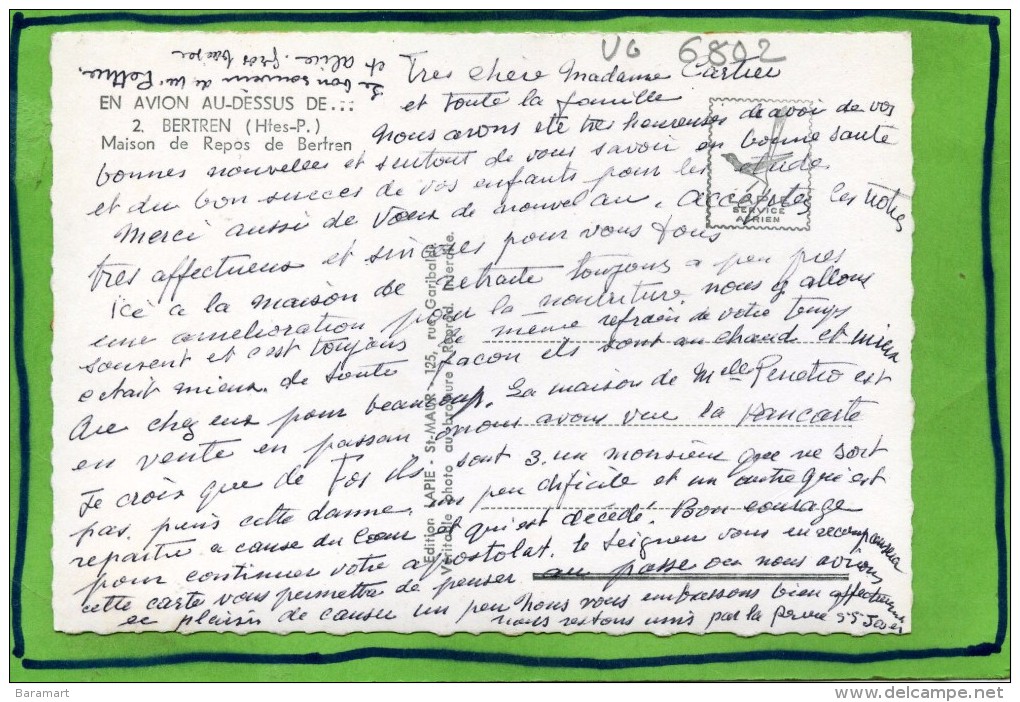 VG 6802
Très chère Madame Cartier
et toute la famille
Le bon souvenir de
et alice. gros baiser
EN AVION AU-DESSUS DE...
2. BERTREN (Htes-P.)
Maison de Repos de Bertren
LAPIE
SERVICE
AÉRIEN
nous avons été très heureuses de avoir de vos
bonnes nouvelles et surtout de vous savoir en bonne santé
et du bon succès de vos enfants pour les études
Merci aussi de vœux de nouvel an. acceptez les notres
très affectueux et sincères pour vous tous
Ici a la maison de retraite toujours a peu près
une amélioration pour la nourriture, nous y allons
souvent et c'est toujours le même refrain de votre temps
etait mieux. de santé façon ils sont au chaud et mieux
que chez eux pour beaucoup. La maison de Melle est
en vente en passan nous avons vue la pancarte
Je crois que de ils sont 3. un monsieur que ne sort
pas, puis cette dame, un peu dificile et un autre qui est
repartie a cause du Cœur et qui est décédé. Bon courage
pour continuer votre apostolat. le Seigneur vous en recompensera
cette carte vous permettra de penser au passé ou nous avions
ce plaisir de causer un peu nous vous embrassons bien affectueusement
nous restons unis par la prière
Edition LAPIE - St-MAUR - 125, rue Garibaldi
Véritable photo au bromure - Reprod. interdite.
Baramart
www.delcampe.net